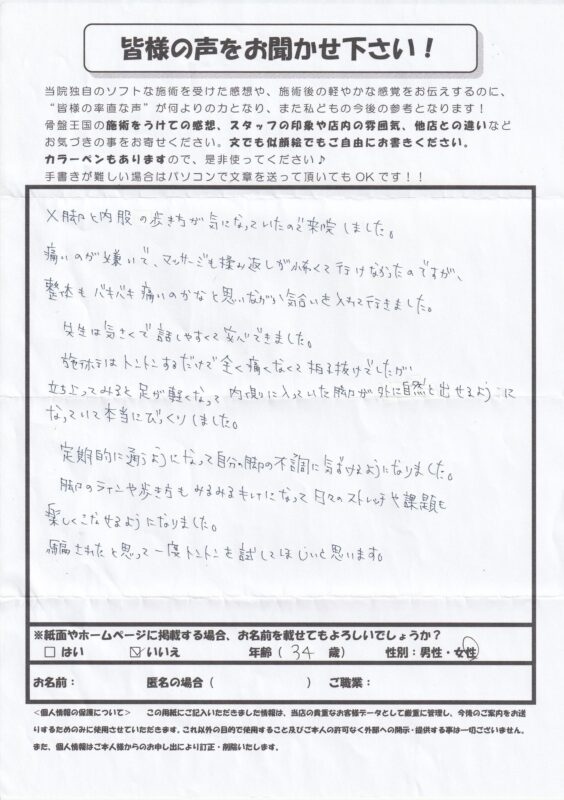 皆様の声をお聞かせ下さい！
当院独自のソフトな施術を受けた感想や、施術後の軽やかな感覚をお伝えするのに、
“皆様の率直な声”が何よりの力となり、また私どもの今後の参考となります！
骨盤王国の施術をうけての感想、スタッフの印象や店内の雰囲気、他店との違いなど
お気づきの事をお寄せください。文でも似顔絵でもご自由にお書きください。
カラーペンもありますので、是非使ってください♪
手書きが難しい場合はパソコンで文章を送って頂いてもＯＫです！！
X脚と内股の歩き方が気になっていたので来院しました。
痛いのが嫌いで、マッサージも揉み返しが怖くて行けなかったのですが、
整体もバキバキ痛いのかなと思いながら気合いを入れて行きました。
先生は気さくで話しやすくて安心できました。
施術はトントンするだけで全く痛くなくて拍子抜けでしたが
立ち上ってみると足が軽くなって内側に入っていた脚が外に自然と出せるように
なっていて本当にびっくりしました。
定期的に通うようになって自分の脚の不調に気づけるようになりました。
脚のラインや歩き方もみるみるキレイになって日々のストレッチや課題も
楽しくこなせるようになりました。
騙されたと思って一度トントンを試してほしいと思います。
※紙面やホームページに掲載する場合、お名前を載せてもよろしいでしょうか？
□ はい ☑ いいえ 年齢（ 34 歳） 性別：男性・女性
お名前： 匿名の場合（ ） ご職業：
＜個人情報の保護について＞ この用紙にご記入いただきました情報は、当店の貴重なお客様データとして厳重に管理し、今後のご案内をお送
りするためのみに使用させていただきます。これ以外の目的で使用すること及びご本人の許可なく外部への開示・提供する事は一切ございません。
また、個人情報はご本人様からのお申し出により訂正・削除いたします。